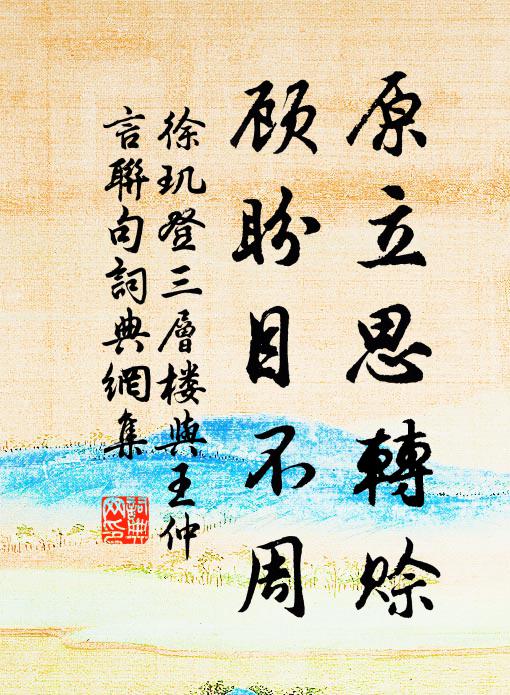 原立思轉賒
顧盼目不周
徐玑登三層楼與王仲
言聯句詞典網集